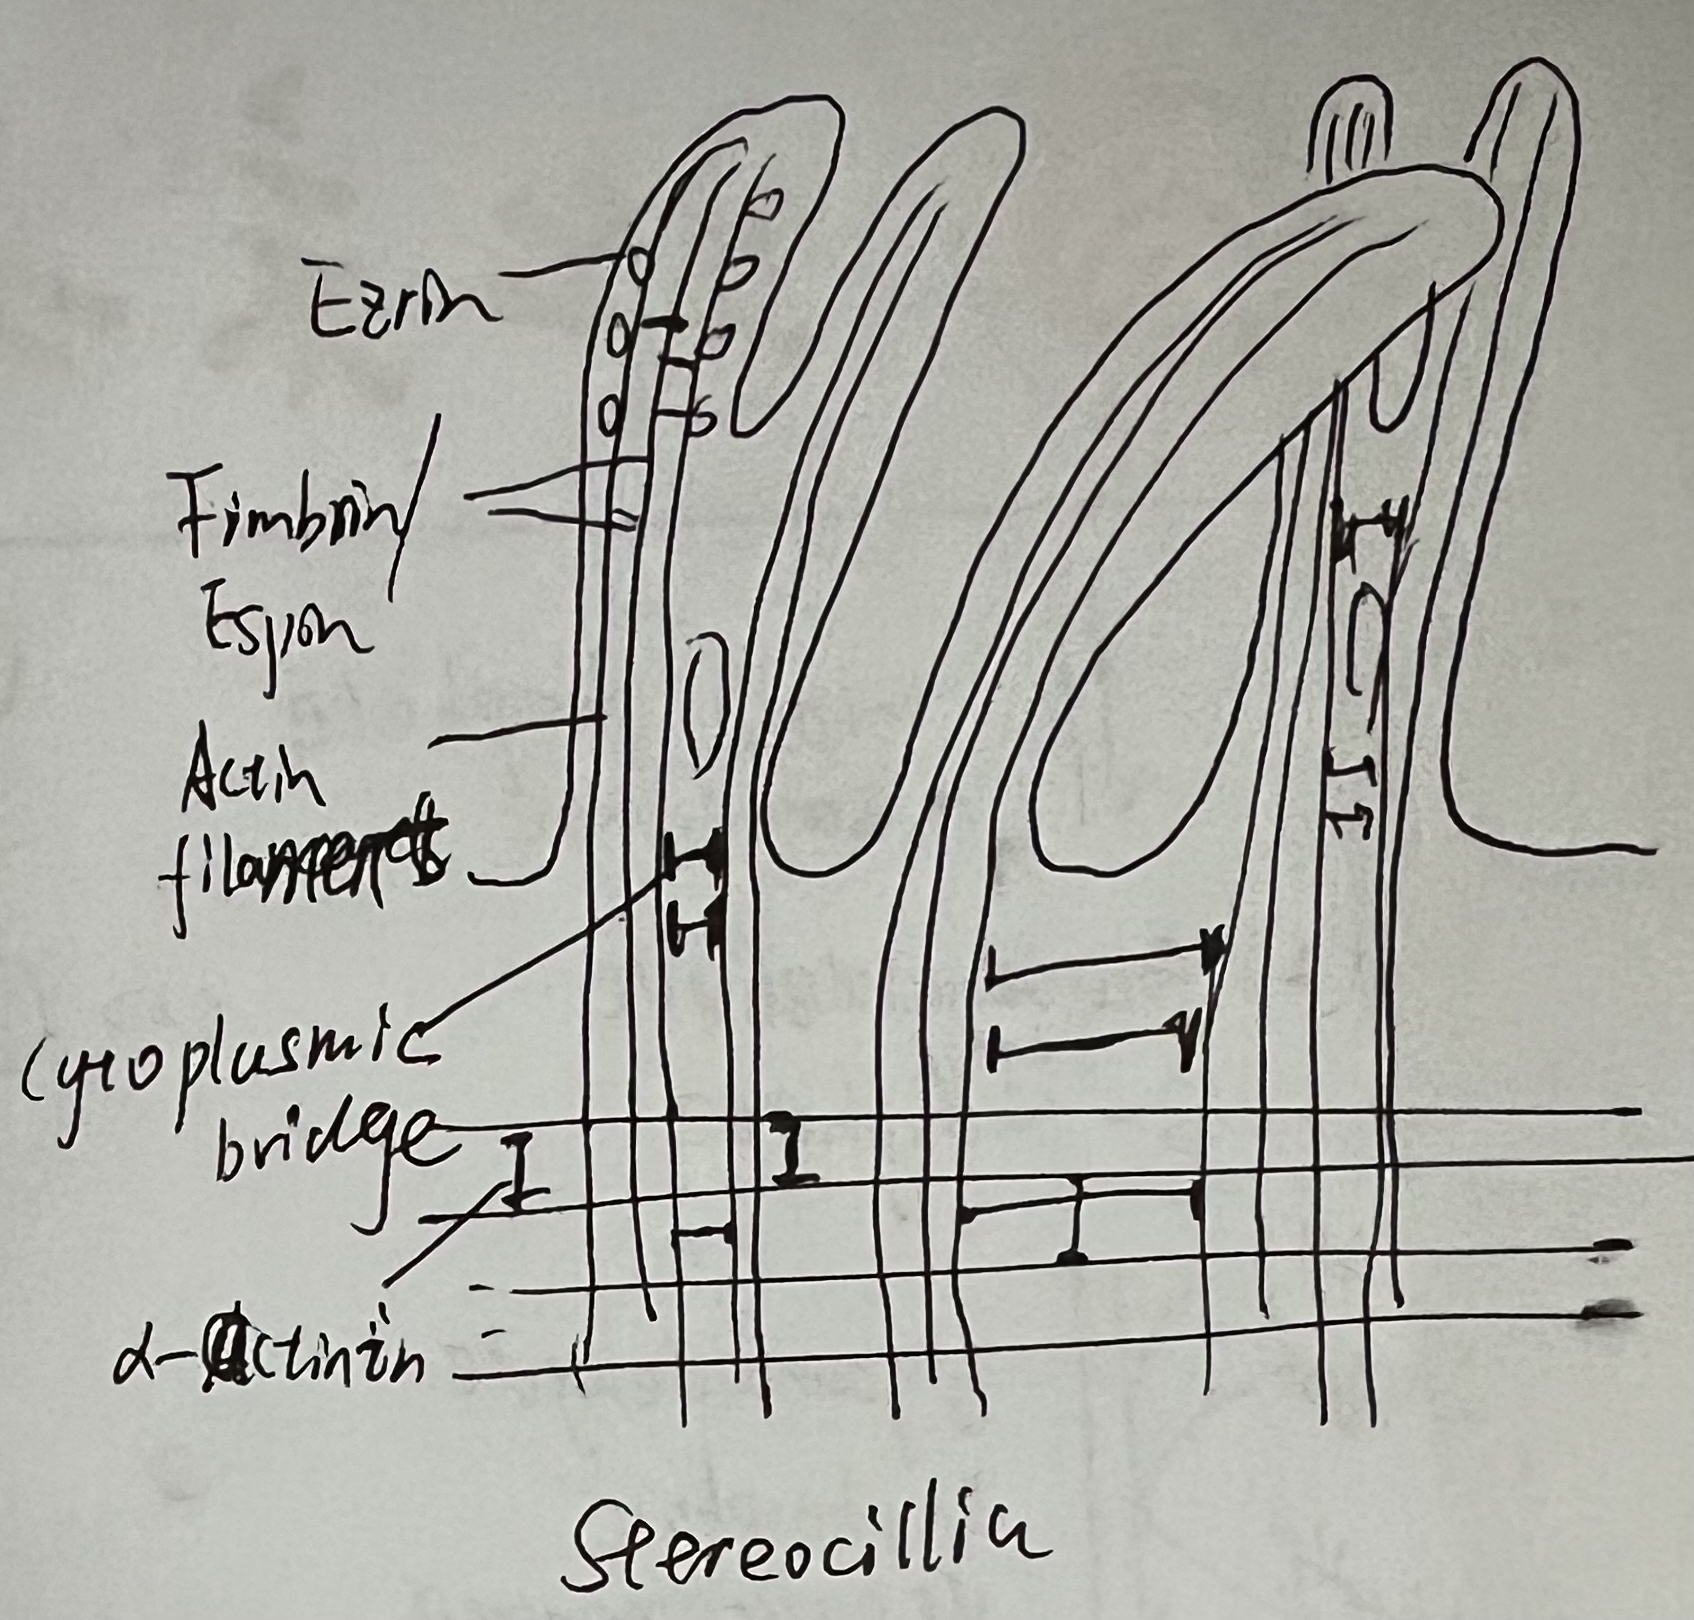 Ezrin
Fimbrin/
Espin
Actin
filaments
Cytoplasmic
bridge
α-Actinin
Stereocillia